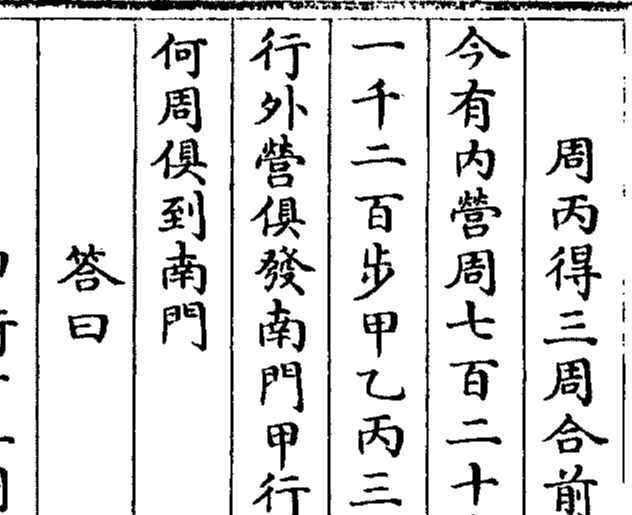 周丙得三周合前
今有内營周七百二十
一千二百步甲乙丙三
行外營俱發南門甲行
何周俱到南門
答曰